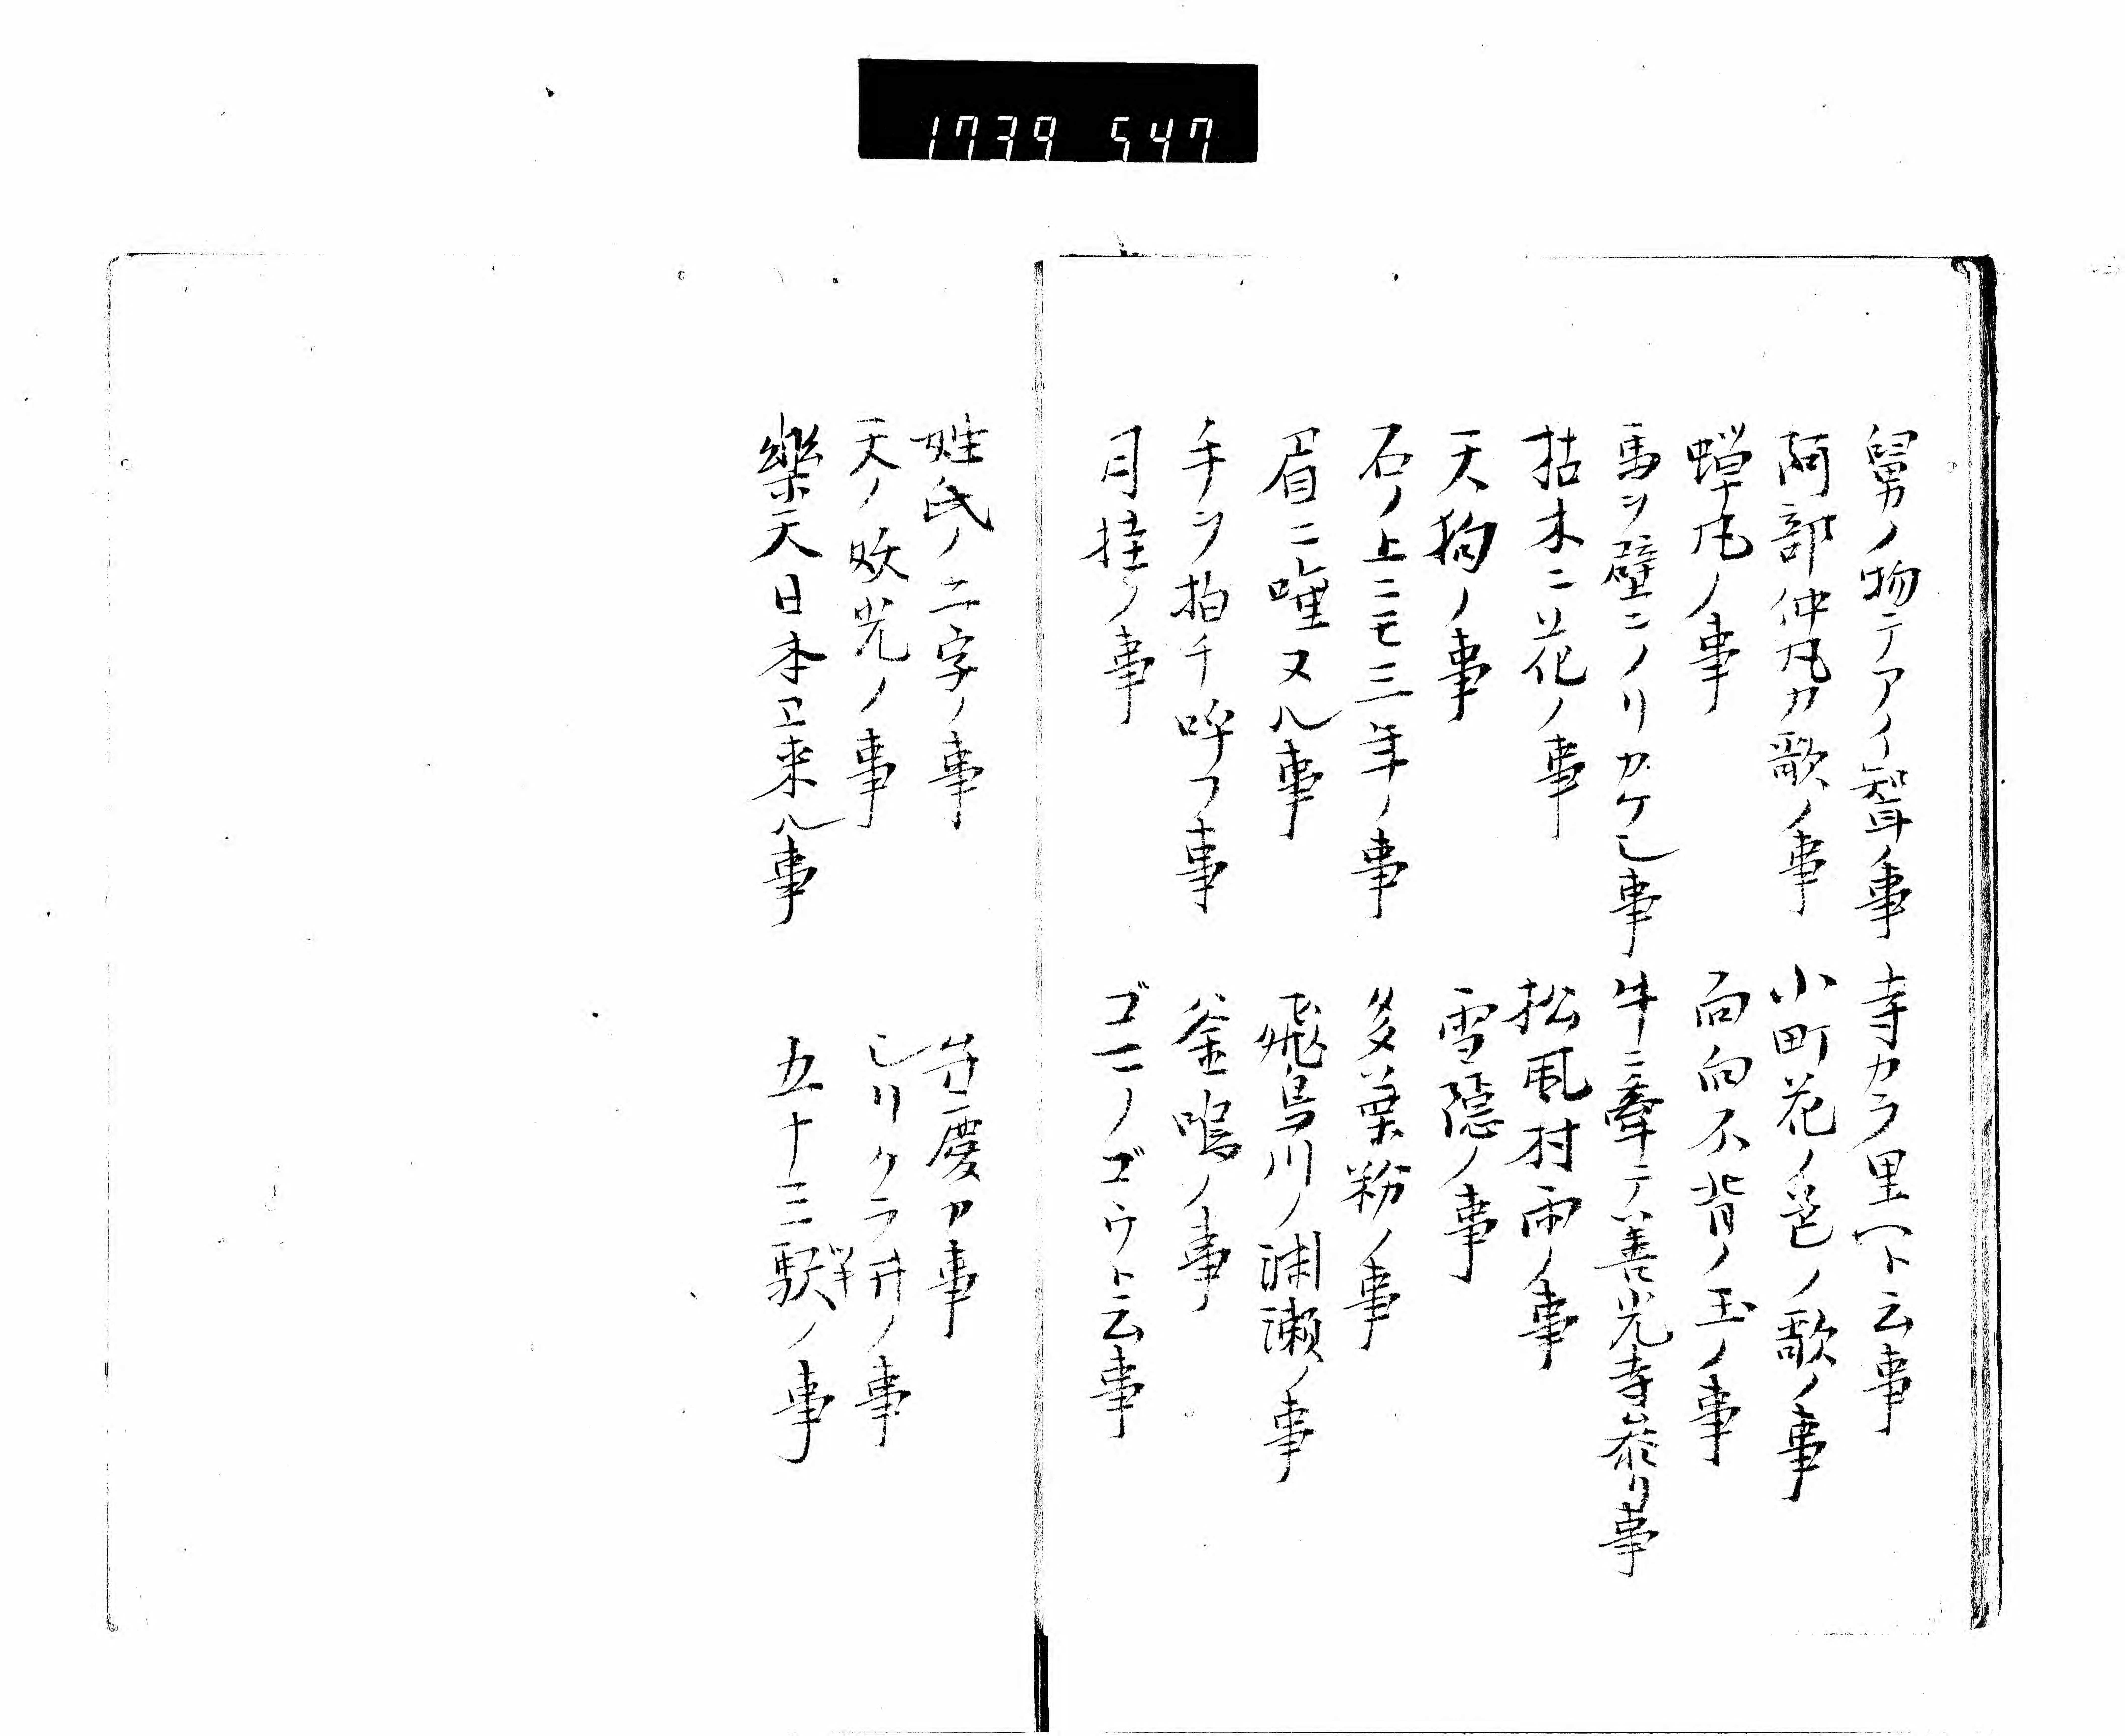 1739 547
舅ノ物テアイ聟ノ事
寺カラ里ヘト云事
阿部仲丸カ歌ノ事
小町花ノ色ノ歌ノ事
蝉丸ノ事
面向不背ノ玉ノ事
馬ヲ壁ニノリカケシ事
牛ニ牽テ善光寺参リ事
枯木ニ花ノ事
松風村雨ノ事
天狗ノ事
雪隠ノ事
石ノ上ニモ三年ノ事
多葉粉ノ事
眉ニ唾ヌル事
飛鳥川ノ渕瀬ノ事
手ヲ拍チ呼フ事
釜鳴ノ事
月桂ノ事
ゴニノゴウト云事
姓氏ノ二字ノ事
弁慶カ事
天ノ妖光ノ事
シリクラ井ノ事
樂天日本ヱ来ル事
五十三駅ノ事